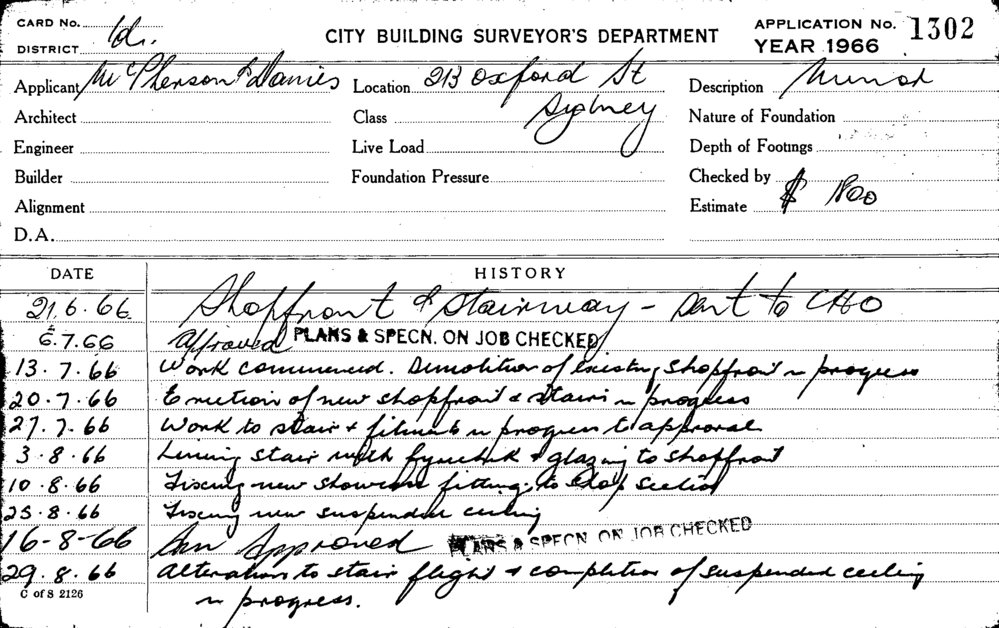 CARD No.
DISTRICT
CITY BUILDING SURVEYOR'S DEPARTMENT
APPLICATION No. 1302
YEAR 1966
Applicant McPherson & Davies Location 213 Oxford St Description Minor
Architect Class Sydney Nature of Foundation
Engineer Live Load Depth of Footings
Builder Foundation Pressure Checked by
Alignment Estimate $ 1800
D.A.
DATE HISTORY
21.6.66 Shopfront & Stairway - sent to CHO
6.7.66 Approved PLANS & SPECN. ON JOB CHECKED
13.7.66 Work commenced. Demolition of existing shopfront in progress
20.7.66 Erection of new shopfront & stairs in progress
27.7.66 Work to stair + fitments in progress to approval
3.8.66 Lining stair with + glazing to shopfront
10.8.66 Fixing new showcase fittings to shop section
25.8.66 Fixing new suspended ceiling
16-8-66 Approved PLANS & SPECN. ON JOB CHECKED
29.8.66 Alterations to stair flight + completion of suspended ceiling
in progress.
C of S 2126